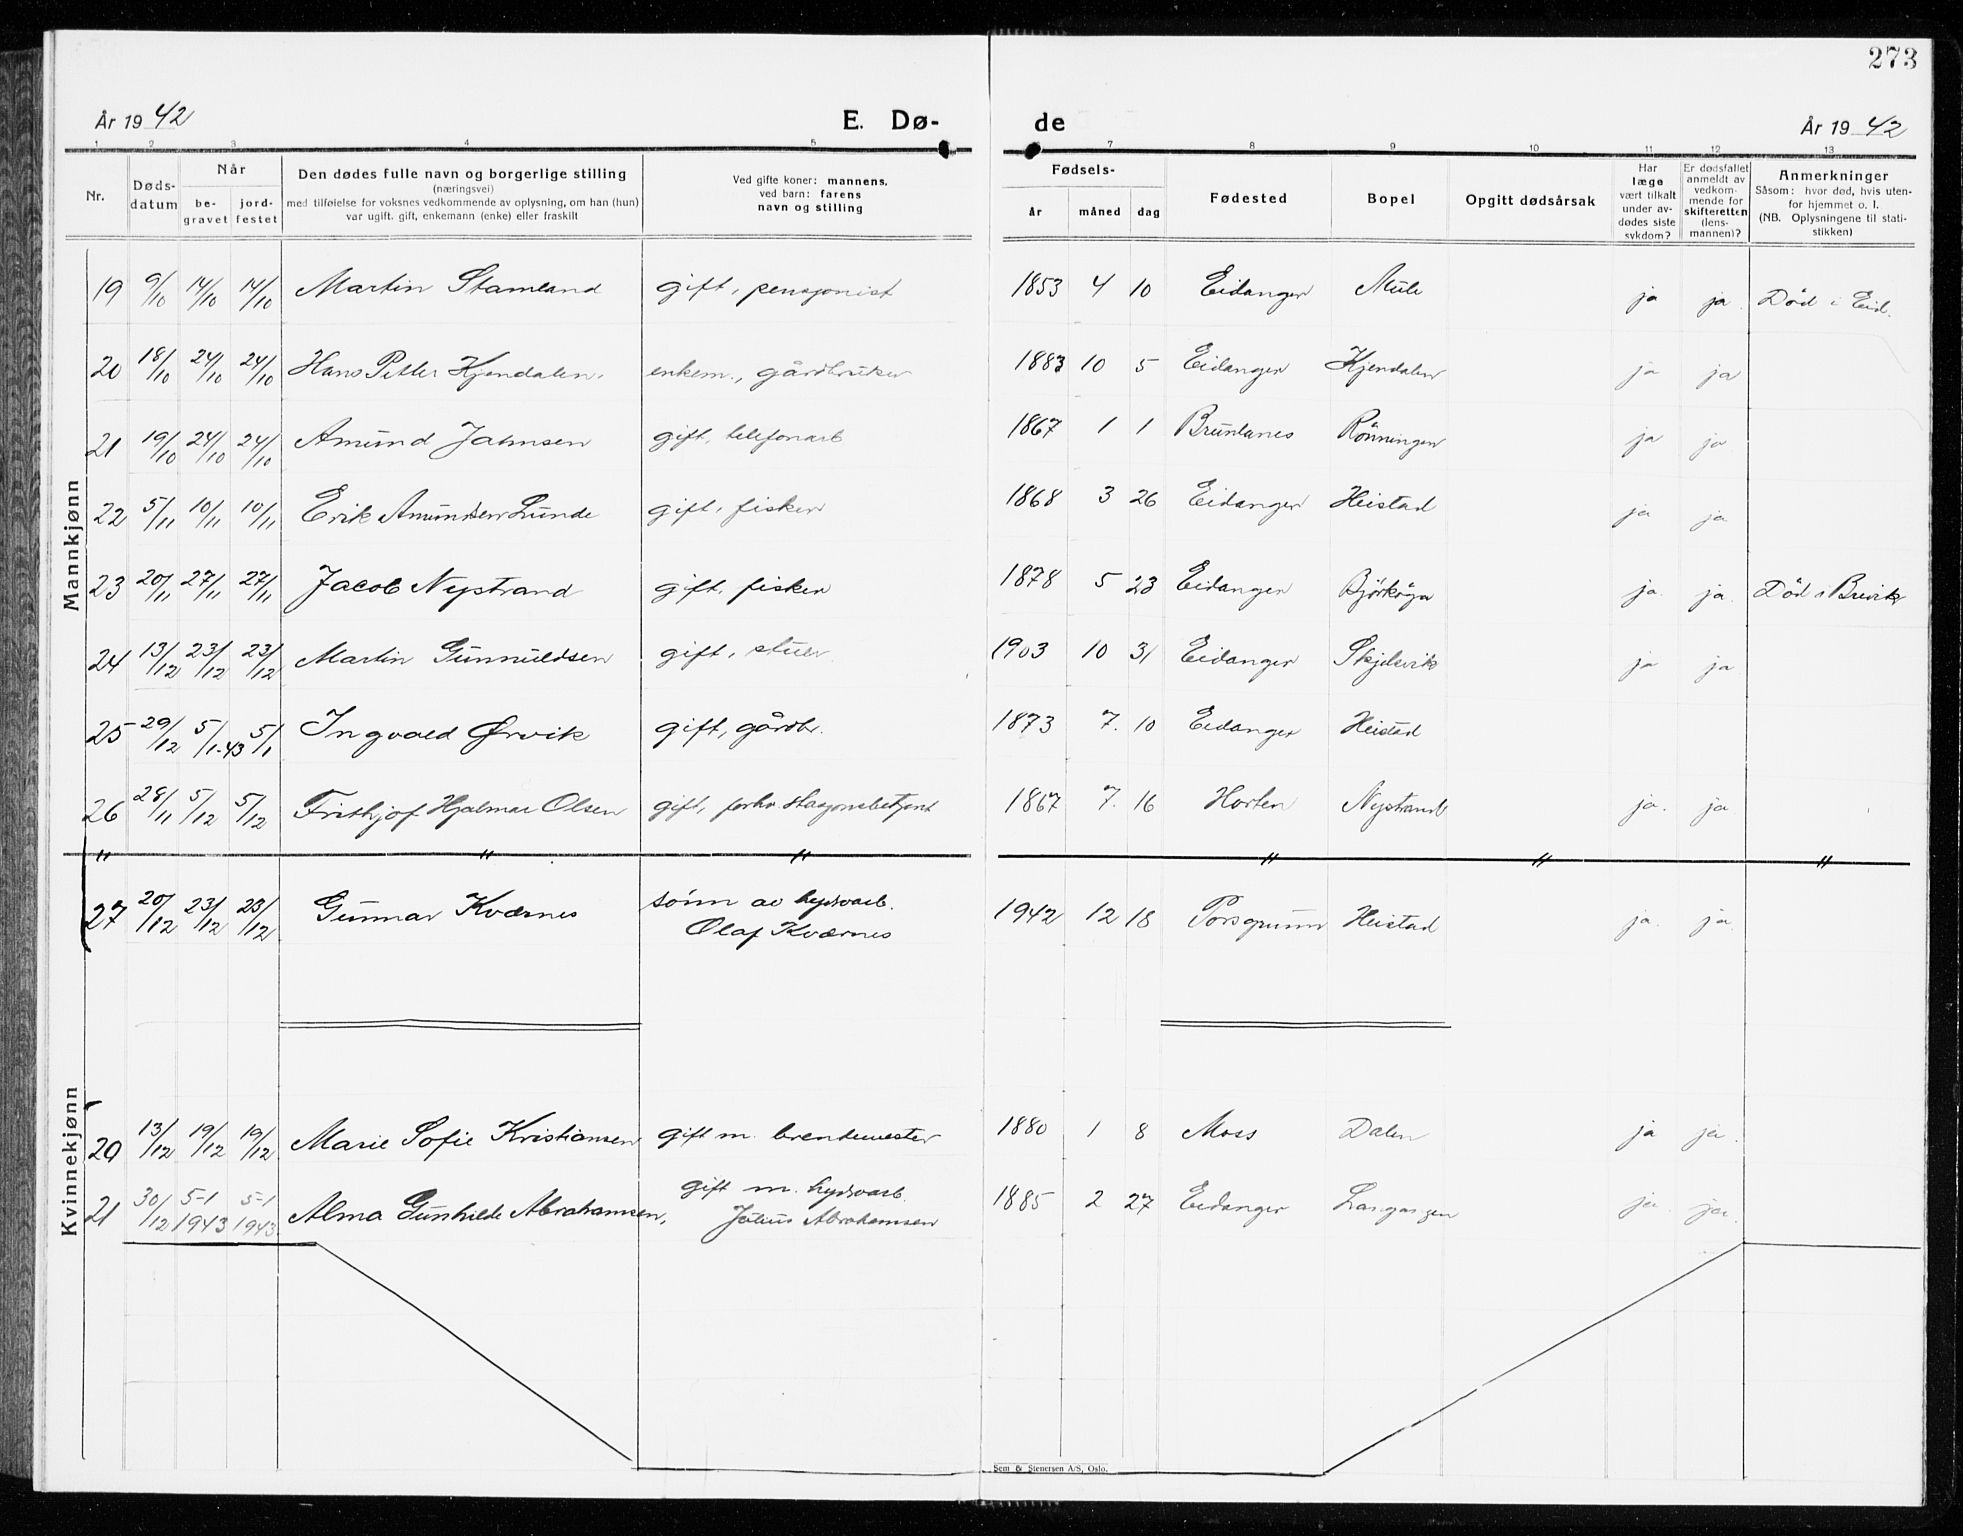 273
År 1942 E. Dø- de År 1942
1 2 3 4 5 7 8 9 10 11 12 13
Nr. Døds-datum Når be-gravet jord-festet Den dødes fulle navn og borgerlige stilling (næringsvei) med tilføielse for voksnes vedkommende av oplysning, om han (hun) var ugift, gift, enkemann (enke) eller fraskilt Ved gifte koner: mannens, ved barn: farens navn og stilling Fødsels- år måned dag Fødested Bopel Opgitt dødsårsak Har læge vært tilkalt under av-dødes siste sykdom? Er dødsfallet anmeldt av vedkom-mende for skifteretten (lens-mannen)? Anmerkninger Såsom: hvor død, hvis uten-for hjemmet o. l. (NB. Oplysningene til stati-stikken)
Mannkjønn
19 9/10 14/10 14/10 Martin Stamland gift, pensjonist 1853 4 10 Eidanger Mule ja ja Död i Eid.
20 18/10 24/10 24/10 Hans Petter Kjendalen. enkem., gårdbruker 1883 10 5 Eidanger Kjendalen ja ja
21 19/10 24/10 24/10 Amund Jahnsen gift, telefonarb 1867 1 1 Brunlanes Rönningen ja ja
22 5/11 10/11 10/11 Erik Amundsen Lunde gift, fisker 1868 3 26 Eidanger Heistad ja ja
23 20/11 27/11 27/11 Jacob Nystrand gift, fisker 1878 5 23 Eidanger Björköya ja ja Död i Brevik
24 13/12 23/12 23/12 Martin Gunnuldsen gift, stuer 1903 10 31 Eidanger Skjelsvik ja ja
25 29/12 5/1-43 5/1 Ingvald Ørvik gift, gårdbr. 1873 7. 10 Eidanger Heistad
26 28/11 5/12 5/12 Frithjof Hjalmar Olsen gift, forhv. stasjonsbetjent 1867 7. 16 Horten Nystrand ja. ja
" " " " " "
27 20/12 23/12 23/12 Gunnar Kværnes sönn av hydroarb. 1942 12 18 Porsgrunn Heistad ja. ja
Olaf Kværnes
Kvinnekjønn
20 13/12 19/12 19/12 Marie Sofie Kristiansen gift m. brendemester 1880 1 8 Moss Dalen ja ja.
21 30/12 5-1 1943 5-1 1943 Alma Gunhilde Abrahamsen, gift m. hydroarb. 1885 2 27 Eidanger Langangen ja. ja.
Julius Abrahamsen
Sem & Stenersen A/S, Oslo.